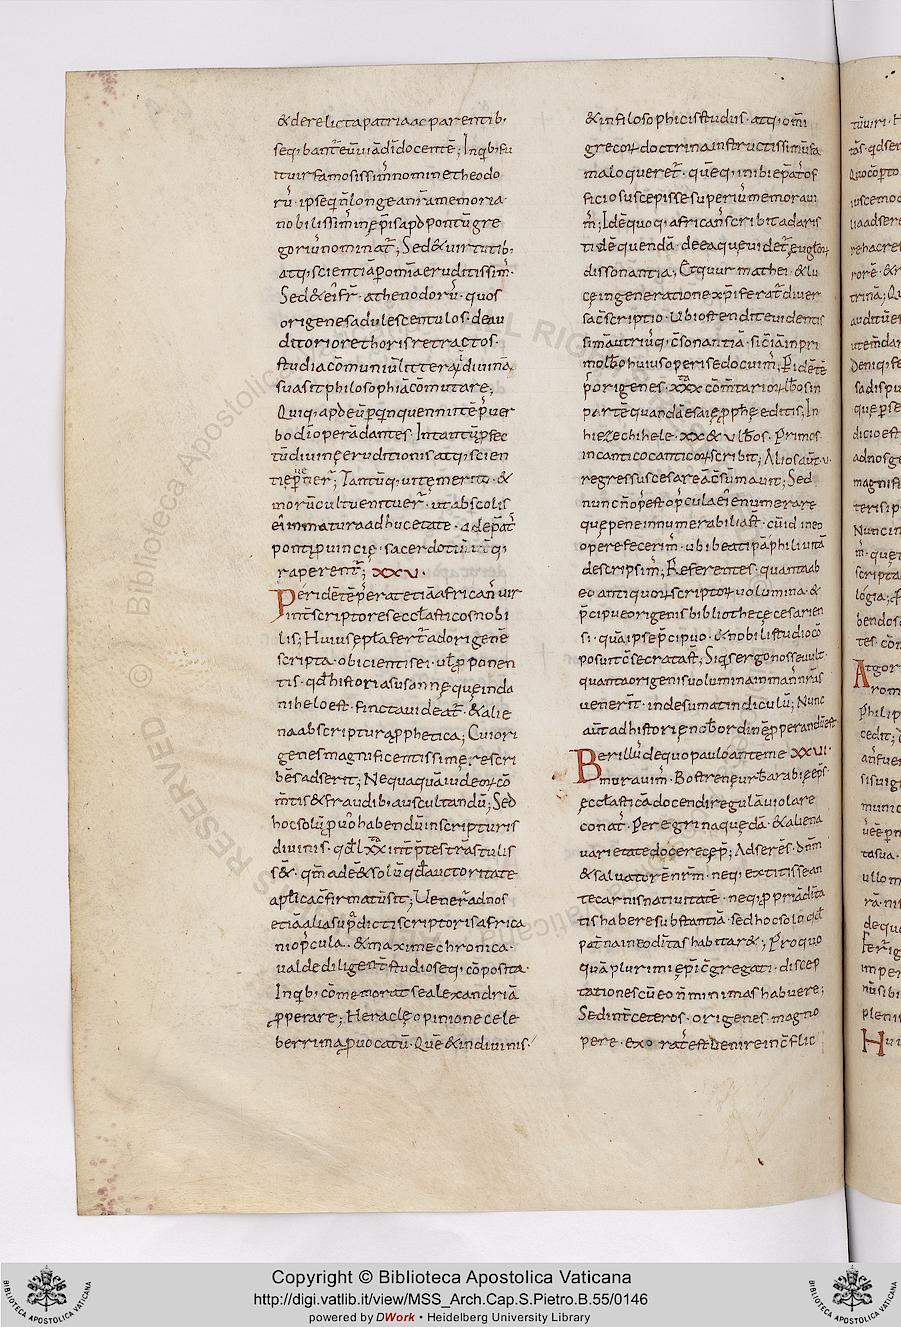 & derelicta patria ac parentib;
seq; bant̄ eū uiā dī docentē; In qb; fu
it uir famosissim̄ nomine theodo
rū. ipse qi n̄ longe a nr̄a memoria
nobilissim̄ in ep̄is apd pontū gre
goriū nominat̄; Sed & uirtutib;
atq; scientiā p omīa eruditissim̄.
Sed & ei fr̄. athenodorū. quos
origenes adulescentulos. de au
ditorio rethoris retractos.
studia cōmuniū litterarū diuina
suasit philosophiā cōmutare;
Qui q; apd eū pq̄ quinquennit tēp̄ uer
bo dī operā dantes. In tantū p̄fec
tū diuinę eruditionis atq; scien
tię p̄uener̄; Tantū q; uitę merito. &
morū cultu enituer̄. ut abscolis
ei immatura adhuc etate. adep̄at̄
pontī puincię. sacerdotiū utiq;
raperent̄; XXV.
Peridē tēp̄ erat etiā africanū uir
int̄ scriptores ecclāsticos nobi
lis; Huius epla fert̄ ad origenē
scripta. obicientis ei. ul̄ ppponen
tis. qd historia susannę quę in da
nihelo est. ficta uideat̄. & alie
na ab scriptura pphetica; Cui ori
genes magnificentissimę rescri
bēs adserit; Nequaquā iudeorum cō
mētis & fraudib; auscultandū; Sed
hoc solū puo habendū in scripturis
diuinis. qd lxx intp̄tes trastulis
s&. qm̄ adē & solū qd auctoritate
aplīca cfirmatū sit; Uener̄ ad nos
etiā alia sup̄dicti scriptoris africa
ni op̄cula. & maxime chronica.
ualde diligent̄ studioseq; cōposita.
In qb; cōmemorat se alexandriā
pperare; Heracleo pinione cele
berrima puocatū. Quē & in diuinis.
& in filosophicis studiis. atq; omī
grecorum doctrina instructissimū fa
ma loqueret̄. quēq; in ibi ep̄at̄ of
ficio suscepisse superiū memoraui
m̄; Idē quoq; african̄ scribit ad aris
tidē quendā. de ea quę uidet̄ euglorum
dissonantia; Et quur mathei & lu
ce in generatione xp̄i ferat̄ diuer
sa c̄scriptio. Ubi ostendit euidentis
simā utriusq; c̄sonantiā. sic̄ iā in pri
mo lb̄o huius operis edocuim̄; P idē tē
p̄ origenes. XXX cōmtariorum lb̄os in
partē quandā esaię pphē. editis; In
hiezechihele. XX & V lb̄os. Primos
in cantico canticorum scribit; Alios aūt. v.
regressus cesareā c̄sūmauit; Sed
nunc n̄ op̄ est op̄cula ei enumerare
quę pene innumerabilia st̄. cū id in eo
opere fecerim̄. ubi beati pāphili uitā
descripsim̄; Referentes. quanta ab
eo antiquorum scriptorum uolumina. &
p̄cipue origenis bibliothecę cesarien
si. qua ipse p̄cipuo. & nobili studio cō
posuit c̄secrata st̄; Siqs ergo nosse uult.
quanta origenis uolumina in man nr̄as
uenerīt. inde sumat indiculū; Nunc
aūt ad historię nob̄ ordinē pperandū est
Berillū de quo paulo ante me XXVI.
morauim̄. Bostrenę urb arabię eps.
ecclāsticā docendi regulā uiolare
conat̄. Peregrina quędā. & aliena
uarietate docere cep̄; Adserēs. dnm̄
& saluatorē nrm̄. neq; extitisse an
te carnis natiuitatē. neq; p priā dita
tis habere substantiā. sed hoc solo qd
patna in eo ditas habitar&; Pro quo
quā plurimi ep̄i c̄gregati. discep
tationes cū eo n̄ minimas habuere;
Sed int̄ ceteros. origenes. magno
pere. exoratū est uenire in c̄flic
Copyright © Biblioteca Apostolica Vaticana
http://digi.vatlib.it/view/MSS_Arch.Cap.S.Pietro.B.55/0146
powered by DWork • Heidelberg University Library